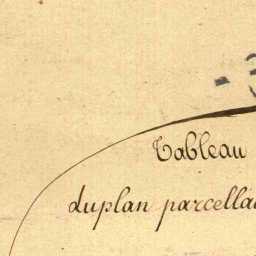 Tableau
duplan parcella